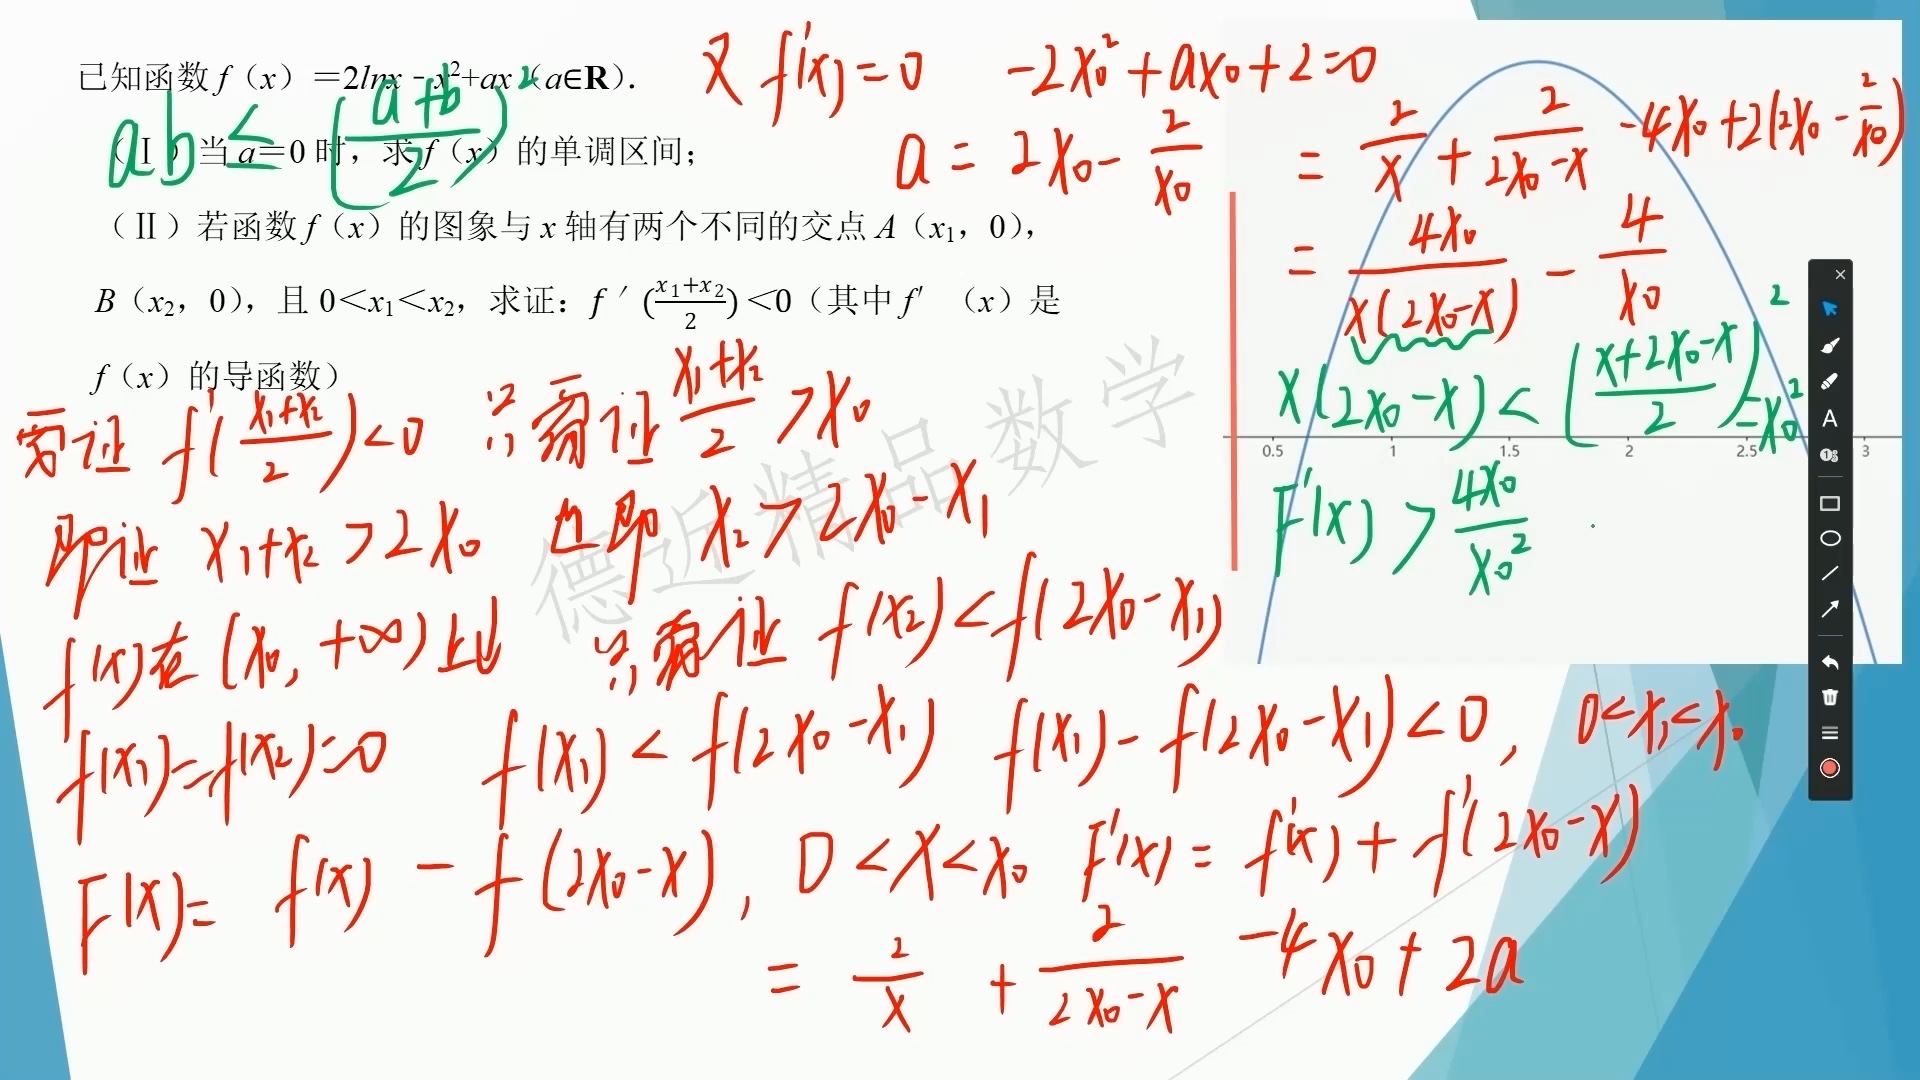 已知函数 f（x）＝2lnx﹣x²+ax（a∈R）．
（Ⅰ）当 a＝0 时，求 f（x）的单调区间；
（Ⅱ）若函数 f（x）的图象与 x 轴有两个不同的交点 A（x₁，0），
B（x₂，0），且 0＜x₁＜x₂，求证：f ′ ((x₁+x₂)/2) ＜0（其中 f′（x）是
f（x）的导函数）
ab ≤ ((a+b)/2)²
又 f'(x)=0 -2x₀²+ax₀+2=0
a = 2x₀ - 2/x₀
= 2/x + 2/(2x₀-x) -4x₀+2(2x₀-2/x₀)
= 4x₀/(x(2x₀-x)) - 4/x₀
x(2x₀-x) < ((x+2x₀-x)/2)² = x₀²
0.5 1 1.5 2 2.5 3
F'(x) > 4x₀/x₀²
需证 f'((x₁+x₂)/2)<0 只需证 (x₁+x₂)/2 > x₀
即证 x₁+x₂ > 2x₀ 也即 x₂ > 2x₀-x₁
f(x)在 (x₀, +∞)上↓ 只需证 f(x₂)<f(2x₀-x₁)
f(x₁)=f(x₂)=0 f(x₁) < f(2x₀-x₁) f(x₁)-f(2x₀-x₁)<0, 0<x₁<x₀
F(x)= f(x) - f(2x₀-x), 0<x<x₀ F'(x)= f'(x)+f'(2x₀-x)
= 2/x + 2/(2x₀-x) -4x₀+2a
德近精品数学
A